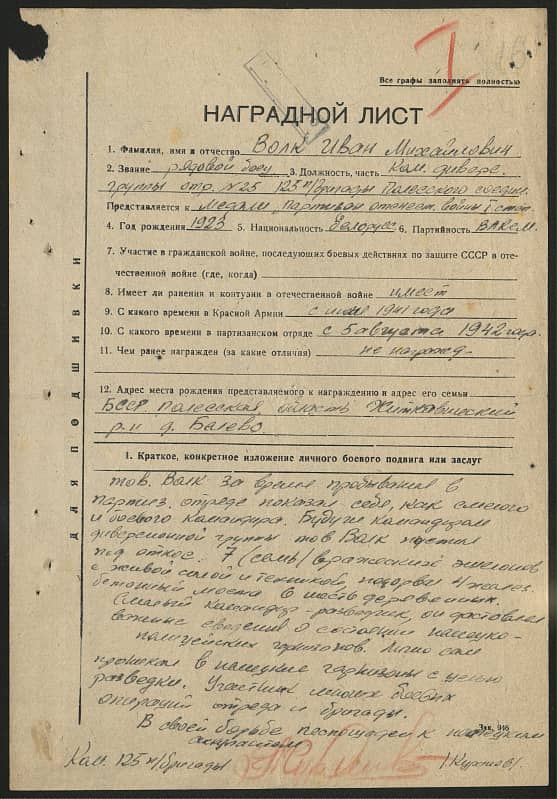 Все графы заполнять полностью
НАГРАДНОЙ ЛИСТ
1. Фамилия, имя и отчество Волк Иван Михайлович
2. Звание рядовой 3. Должность, часть Ком. диверс.
группы отр. №25 125 п/бригады Полесского соедин.
Представляется к медали "Партизан отечест. войны I степ.
4. Год рождения 1923 5. Национальность белорус 6. Партийность ВЛКСМ
7. Участие в гражданской войне, последующих боевых действиях по защите СССР в оте-
чественной войне (где, когда)
8. Имеет ли ранения и контузии в отечественной войне имеет
9. С какого времени в Красной Армии с 1941 года
10. С какого времени в партизанском отряде с 5 августа 1942 года
11. Чем ранее награжден (за какие отличия) не награжд.
12. Адрес места рождения представляемого к награждению и адрес его семьи
БССР Полесская область Житковичский
р-н д.
1. Краткое, конкретное изложение личного боевого подвига или заслуг
тов. Волк за время пребывания в
партиз. отряде показал себя, как смелого
и боевого командира. Будучи командиром
диверсионной группы тов Волк пустил
под откос 7 (семь) вражеских эшелонов
с живой силой и техникой, подорвал 4 желез.
бетонных моста и шесть деревянных.
Смелый командир-разведчик, он доставлял
важные сведения о состоянии немецко-
полицейских гарнизонов. Лично сам
проникал в немецкие гарнизоны с целью
разведки. Участник многих боевых
операций отряда и бригады.
В своей борьбе к немецким
Зак. 946
Ком. 125 п/бригады
ДЛЯ ПОДШИВКИ